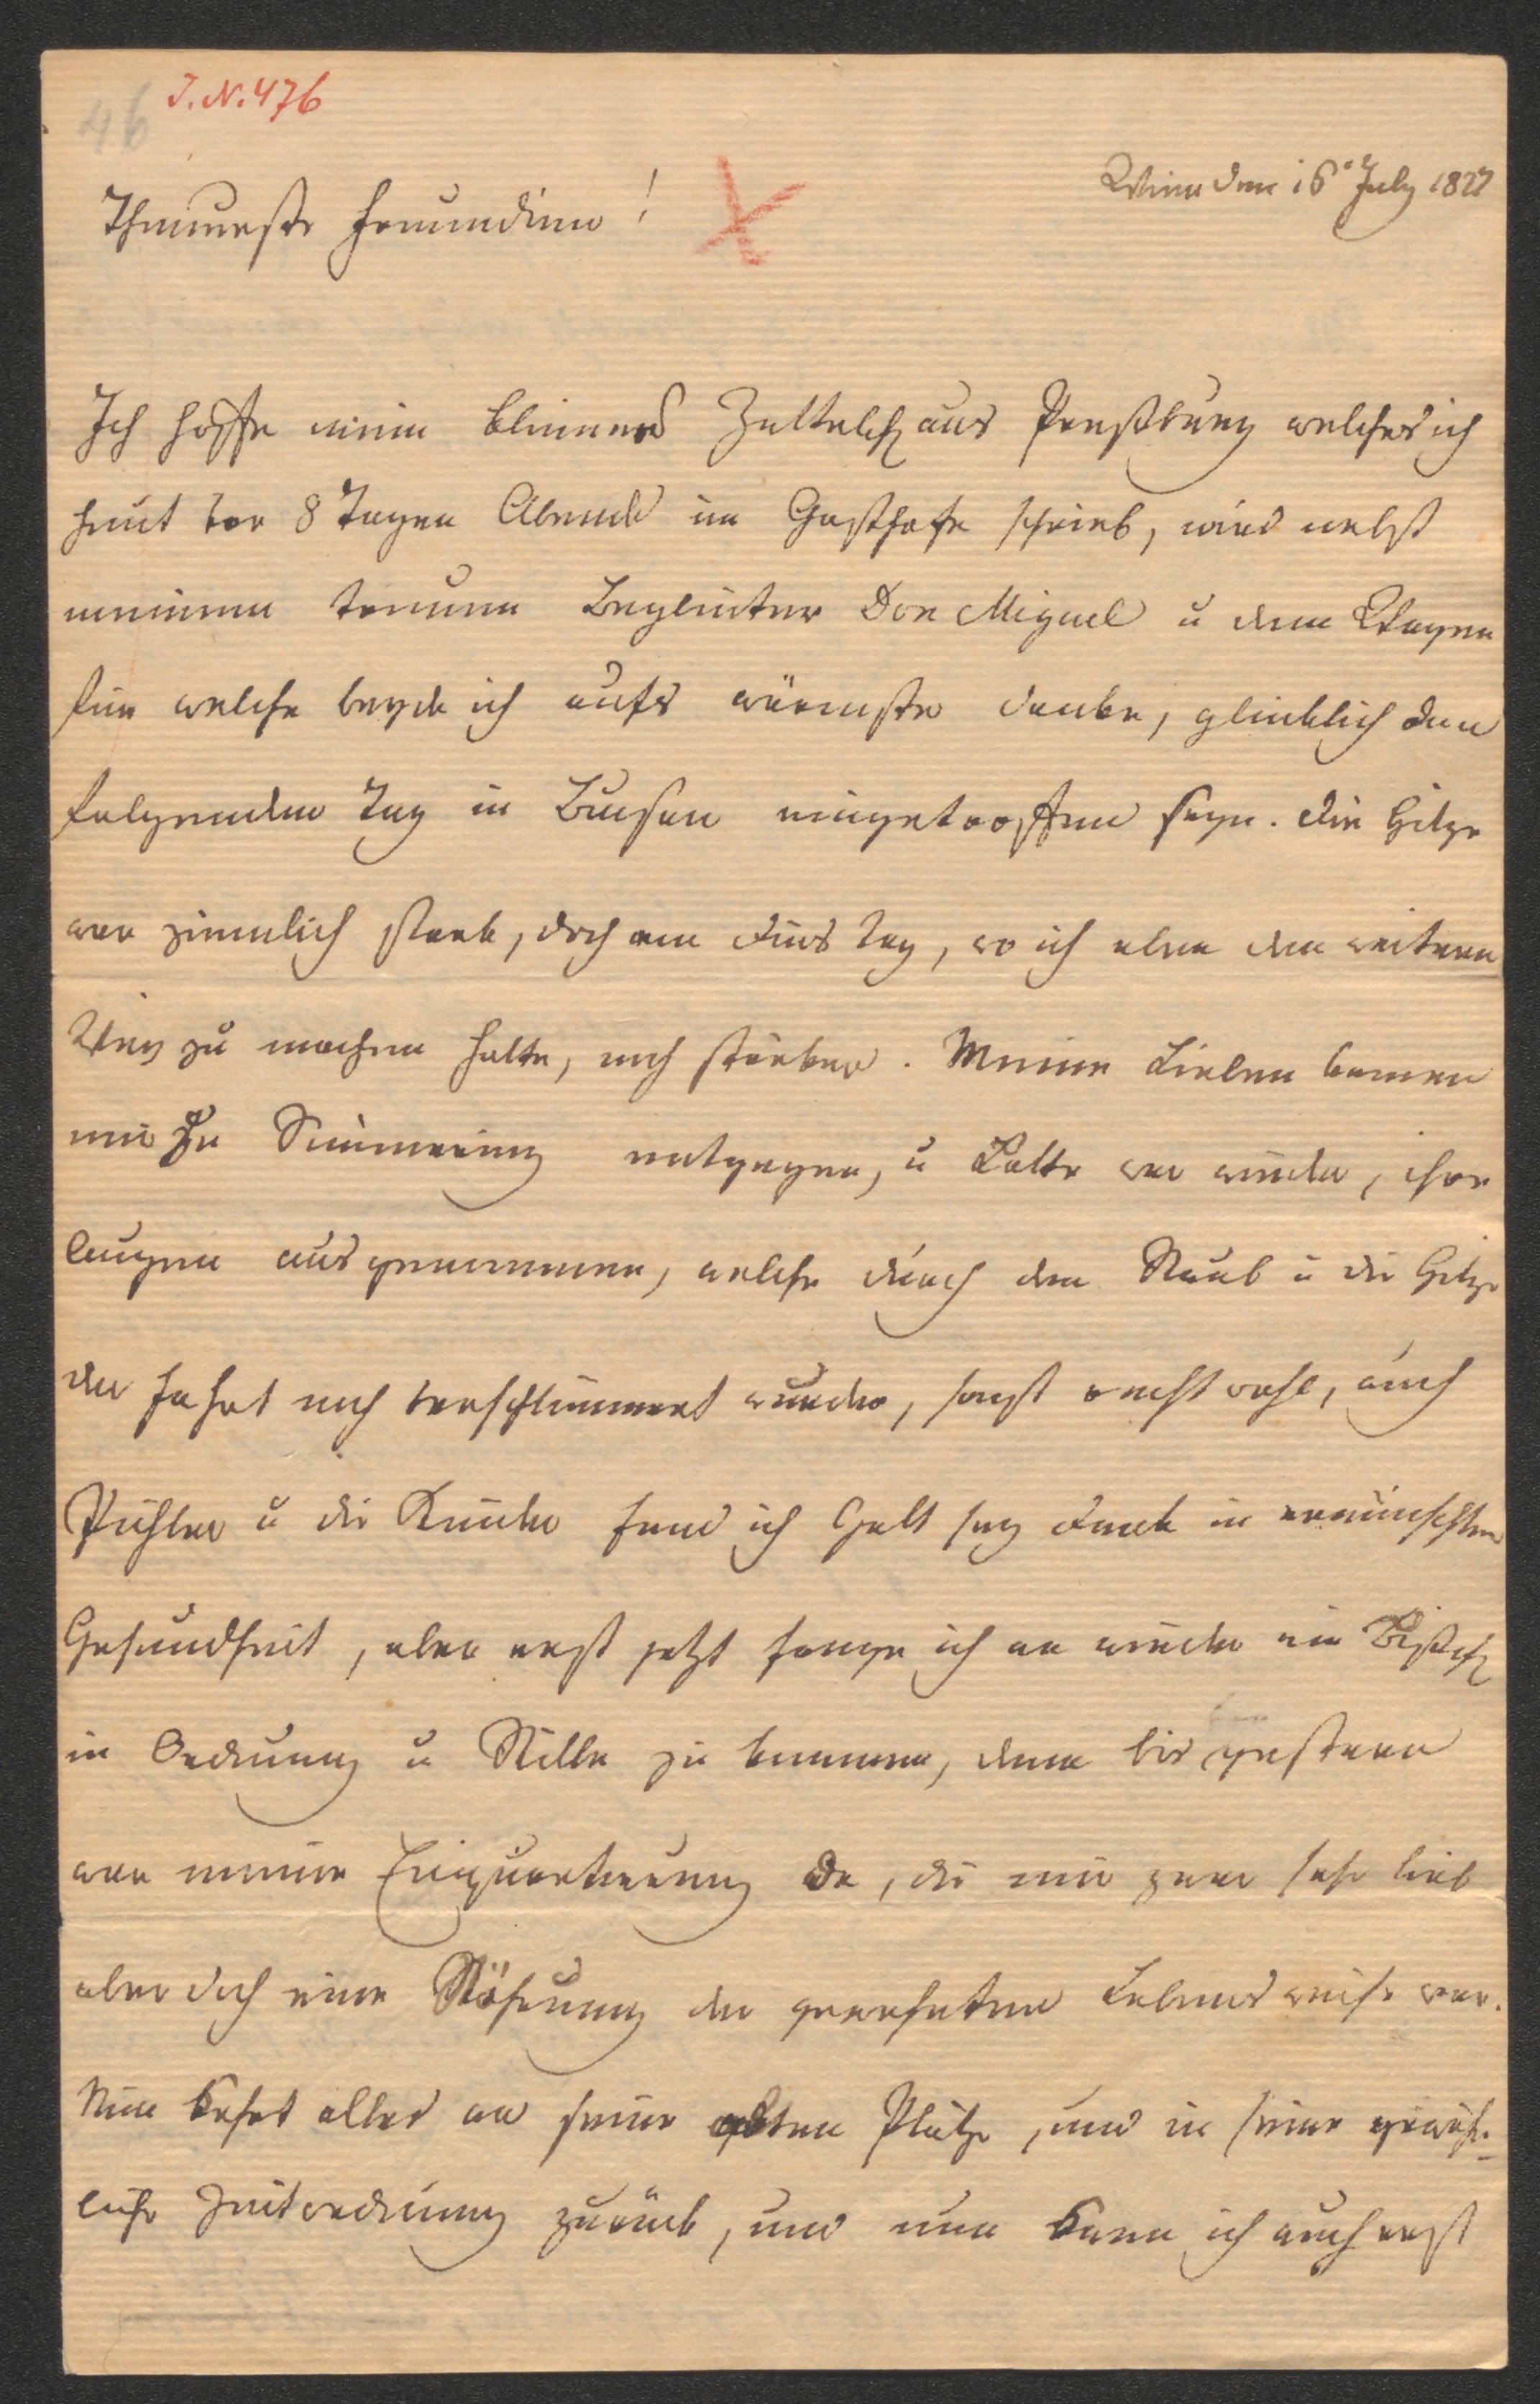 46
J.N. 476
Wien den 16t July 1827
Theuerste Freundinn!
Ich hoffe mein kleines Zettelch aus Preßburg welches ich
heut vor 8 Tagen Abends im Gasthofe schrieb, wird nebst
meinem treuen Begleiter Don Miguel u dem Wagen
für welche beyde ich aufs wärmste danke, glücklich den
folgenden Tag in eingetroffen seyn. Die Hitze
war ziemlich stark, doch am Dinstag, wo ich eben den weitern
Weg zu machen hatte, noch stärker. Meine Lieben kamen
mir zu Simmering entgegen, u Lotte war wieder, ihre
Augen ausgenommen, welche durch den Staub u die Hitze
der Fahrt noch verschlimmert wurden, sonst recht wohl, auch
Pichler u die Kinder fand ich Gott sey Dank in erwünschter
Gesundheit, aber erst jetzt fange ich an wieder ein Bißch
in Ordnung u Stille zu kommen, denn bis gestern
war meine Einquartierung da, die mir zwar sehr lieb
aber doch eine Stöhrung der gewohnten Lebensweise war.
Nun kehrt alles an seine alten Plätze, und in seine gewöhn-
liche Zeitordnung zurück, und nun kann ich auch erst